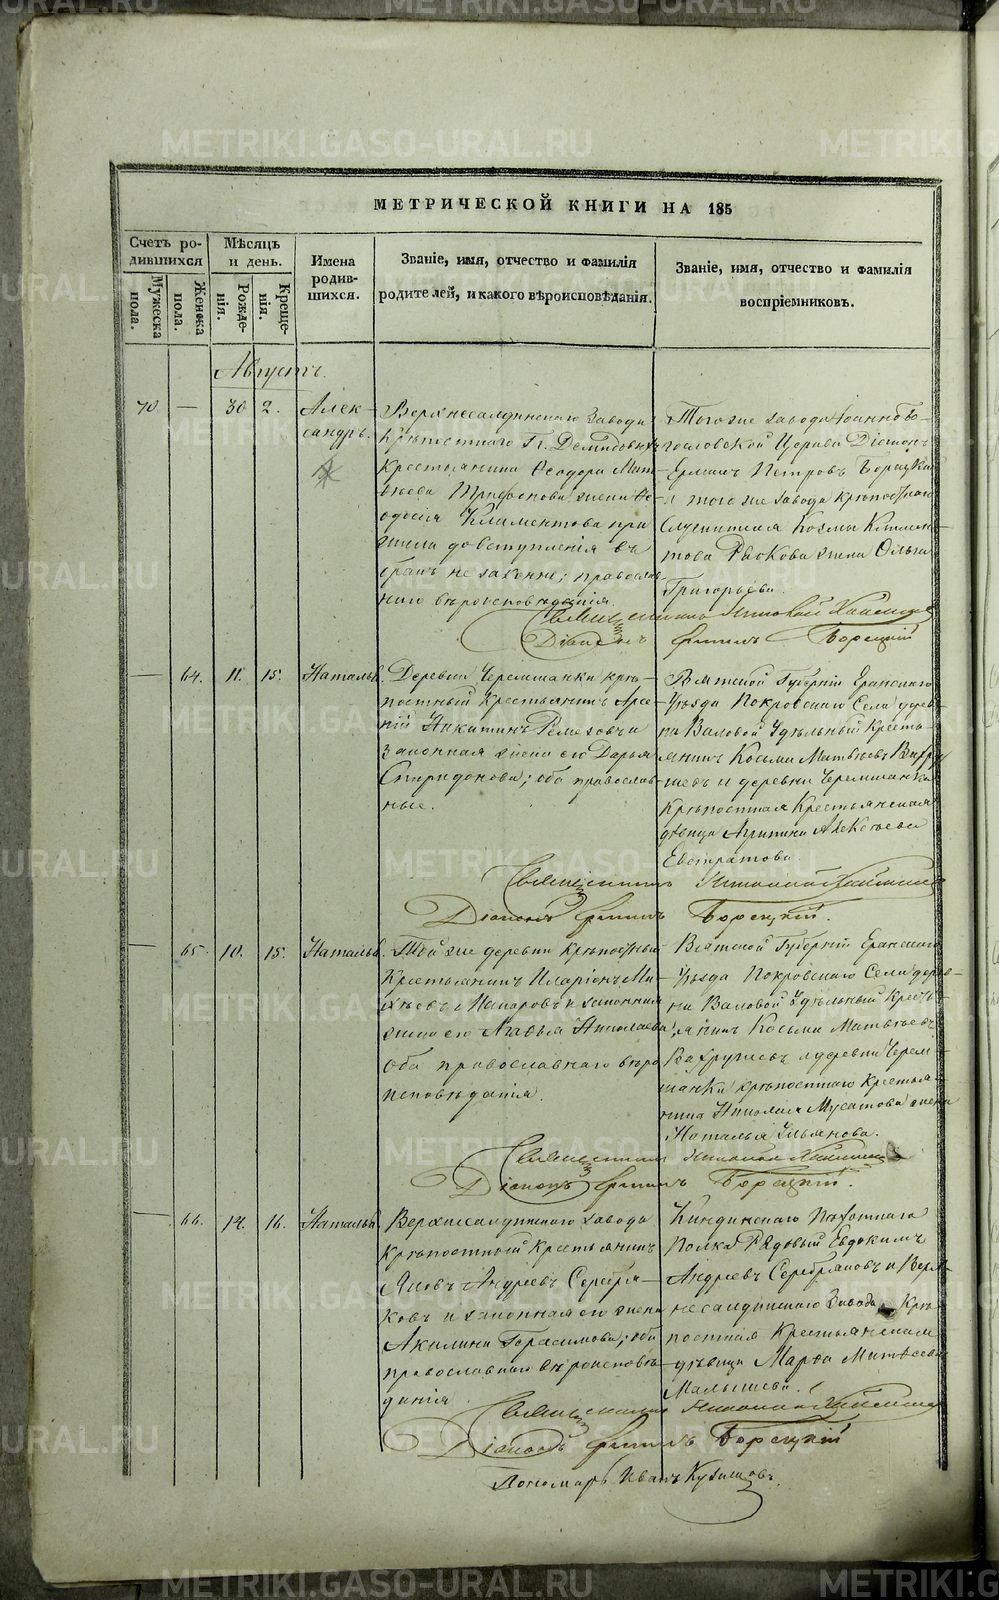 МЕТРИЧЕСКОЙ КНИГИ НА 185
Счетъ ро-
дившихся
Мужеска
пола.
Женска
пола.
Мѣсяцъ
и день.
Рожде-
нія.
Креще-
нія.
Имена
родив-
шихся.
Званіе, имя, отчество и фамилія
родителей, и какого вѣроисповѣданія.
Званіе, имя, отчество и фамилія
воспріемниковъ.
Августъ.
70. — 30 2.
Алек-
сандръ.
Верхнесалдинскаго Завода
крѣпостнаго Гг. Демидовыхъ
Крестьянина Ѳеодора Мат-
вѣева Трифонова жена Ѳе-
одосія Климентова при
жила до вступленія въ
бракъ не законно; православ-
наго вѣроисповѣданія.
Тогоже завода Іоанно Бо-
гословской Церкви Діаконъ
Петровъ Борецкій
и того же завода крѣпостнаго
Козмы Климен-
това жена Ольга
Григорьева.
Священникъ Николай
Діаконъ Борецкій
— 64. 11. 15. Наталья.
Деревни Черемшанки крѣ-
постный Крестьянинъ Арсе-
ній Никитинъ Ремезовъ и
законная жена его Дарья
Спиридонова; оба православ-
ные.
Вятской Губерніи Яранскаго
Уѣзда Покровскаго Села дерев-
ни Валовой Удѣльный Кресть-
янинъ Косьма Матвѣевъ Вахру
шевъ и деревни Черемшанки
Крѣпостная Крестьянская
дѣвица Агрипина Алексѣева
Евстратова.
Священникъ Николай
Діаконъ Борецкій.
— 65. 10. 15. Наталья.
Той же деревни Крѣпостный
Крестьянинъ Иларіонъ Ми-
хѣевъ Макаровъ и законная
жена его Николаева
оба православнаго вѣро
исповѣданія.
Вятской Губерніи Яранскаго
Уѣзда Покровскаго Села дерев-
ни Валовой Удѣльный Кресть-
янинъ Косьма Матвѣевъ
Вахрушевъ и деревни Черем-
шанки крѣпостнаго Крестья-
нина Николая Мусатова жена
Наталья Ульянова.
Священникъ Николай
Діаконъ Борецкій.
— 66. 14. 16. Наталья
Верхнесалдинскаго завода
Крѣпостный Крестьянинъ
Яковъ Андреевъ Серебря-
ковъ и законная его жена
Акилина Герасимова; оба
православнаго вѣроисповѣ-
данія.
Пѣхотнаго
Полка Рядовый Евдокимъ
Андреевъ Серебряковъ и Верх-
несалдинскаго Завода Крѣ-
постная Крестьянская
дѣвица Марѳа Матѳеева
Малышева.
Священникъ Николай
Діаконъ Борецкій
Пономарь Иванъ
METRIKI.GASO-URAL.RU